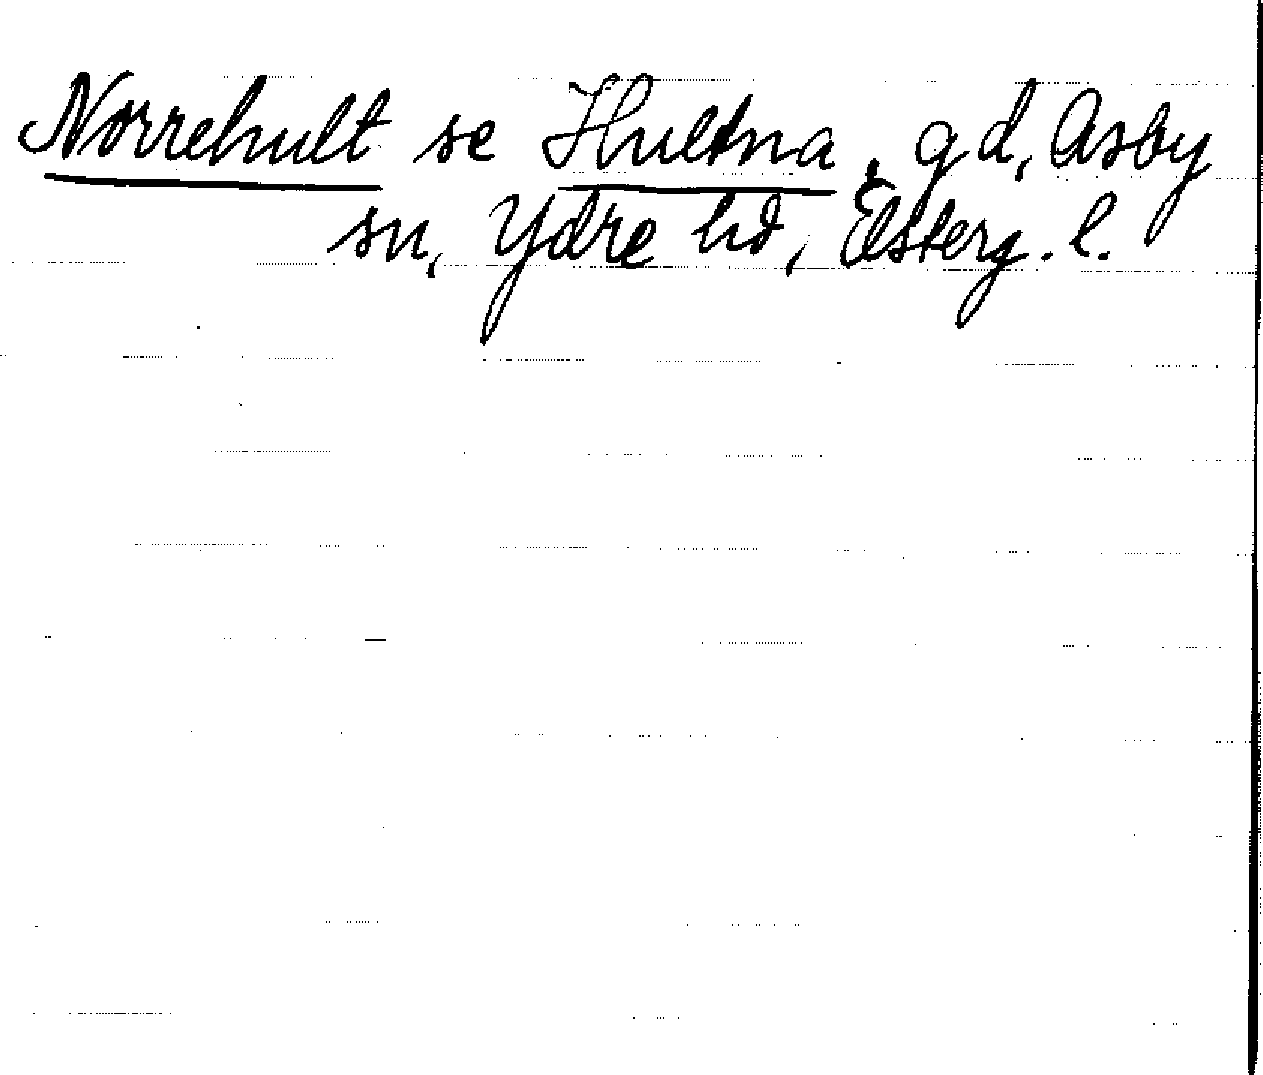 Norrehult se Hultna, gd, Asby
sn, Ydre hd, Österg. l.